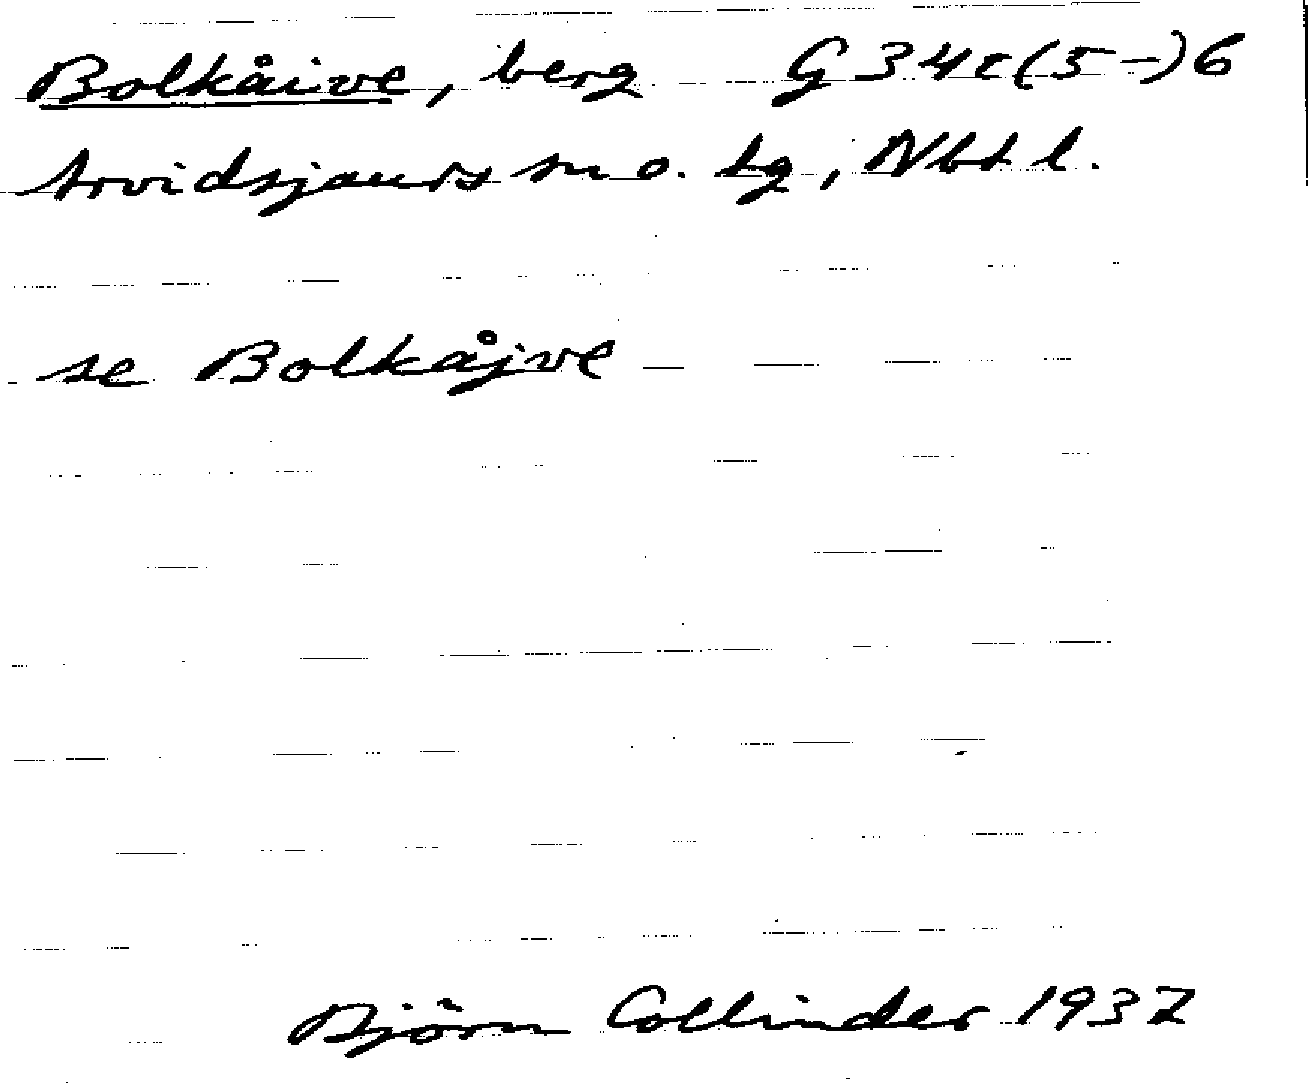 Bolkåive, berg G 34c(5-)6
Arvidsjaurs sn o. tg, Nbt l.
se Bolkåjve
Björn Collinder 1937